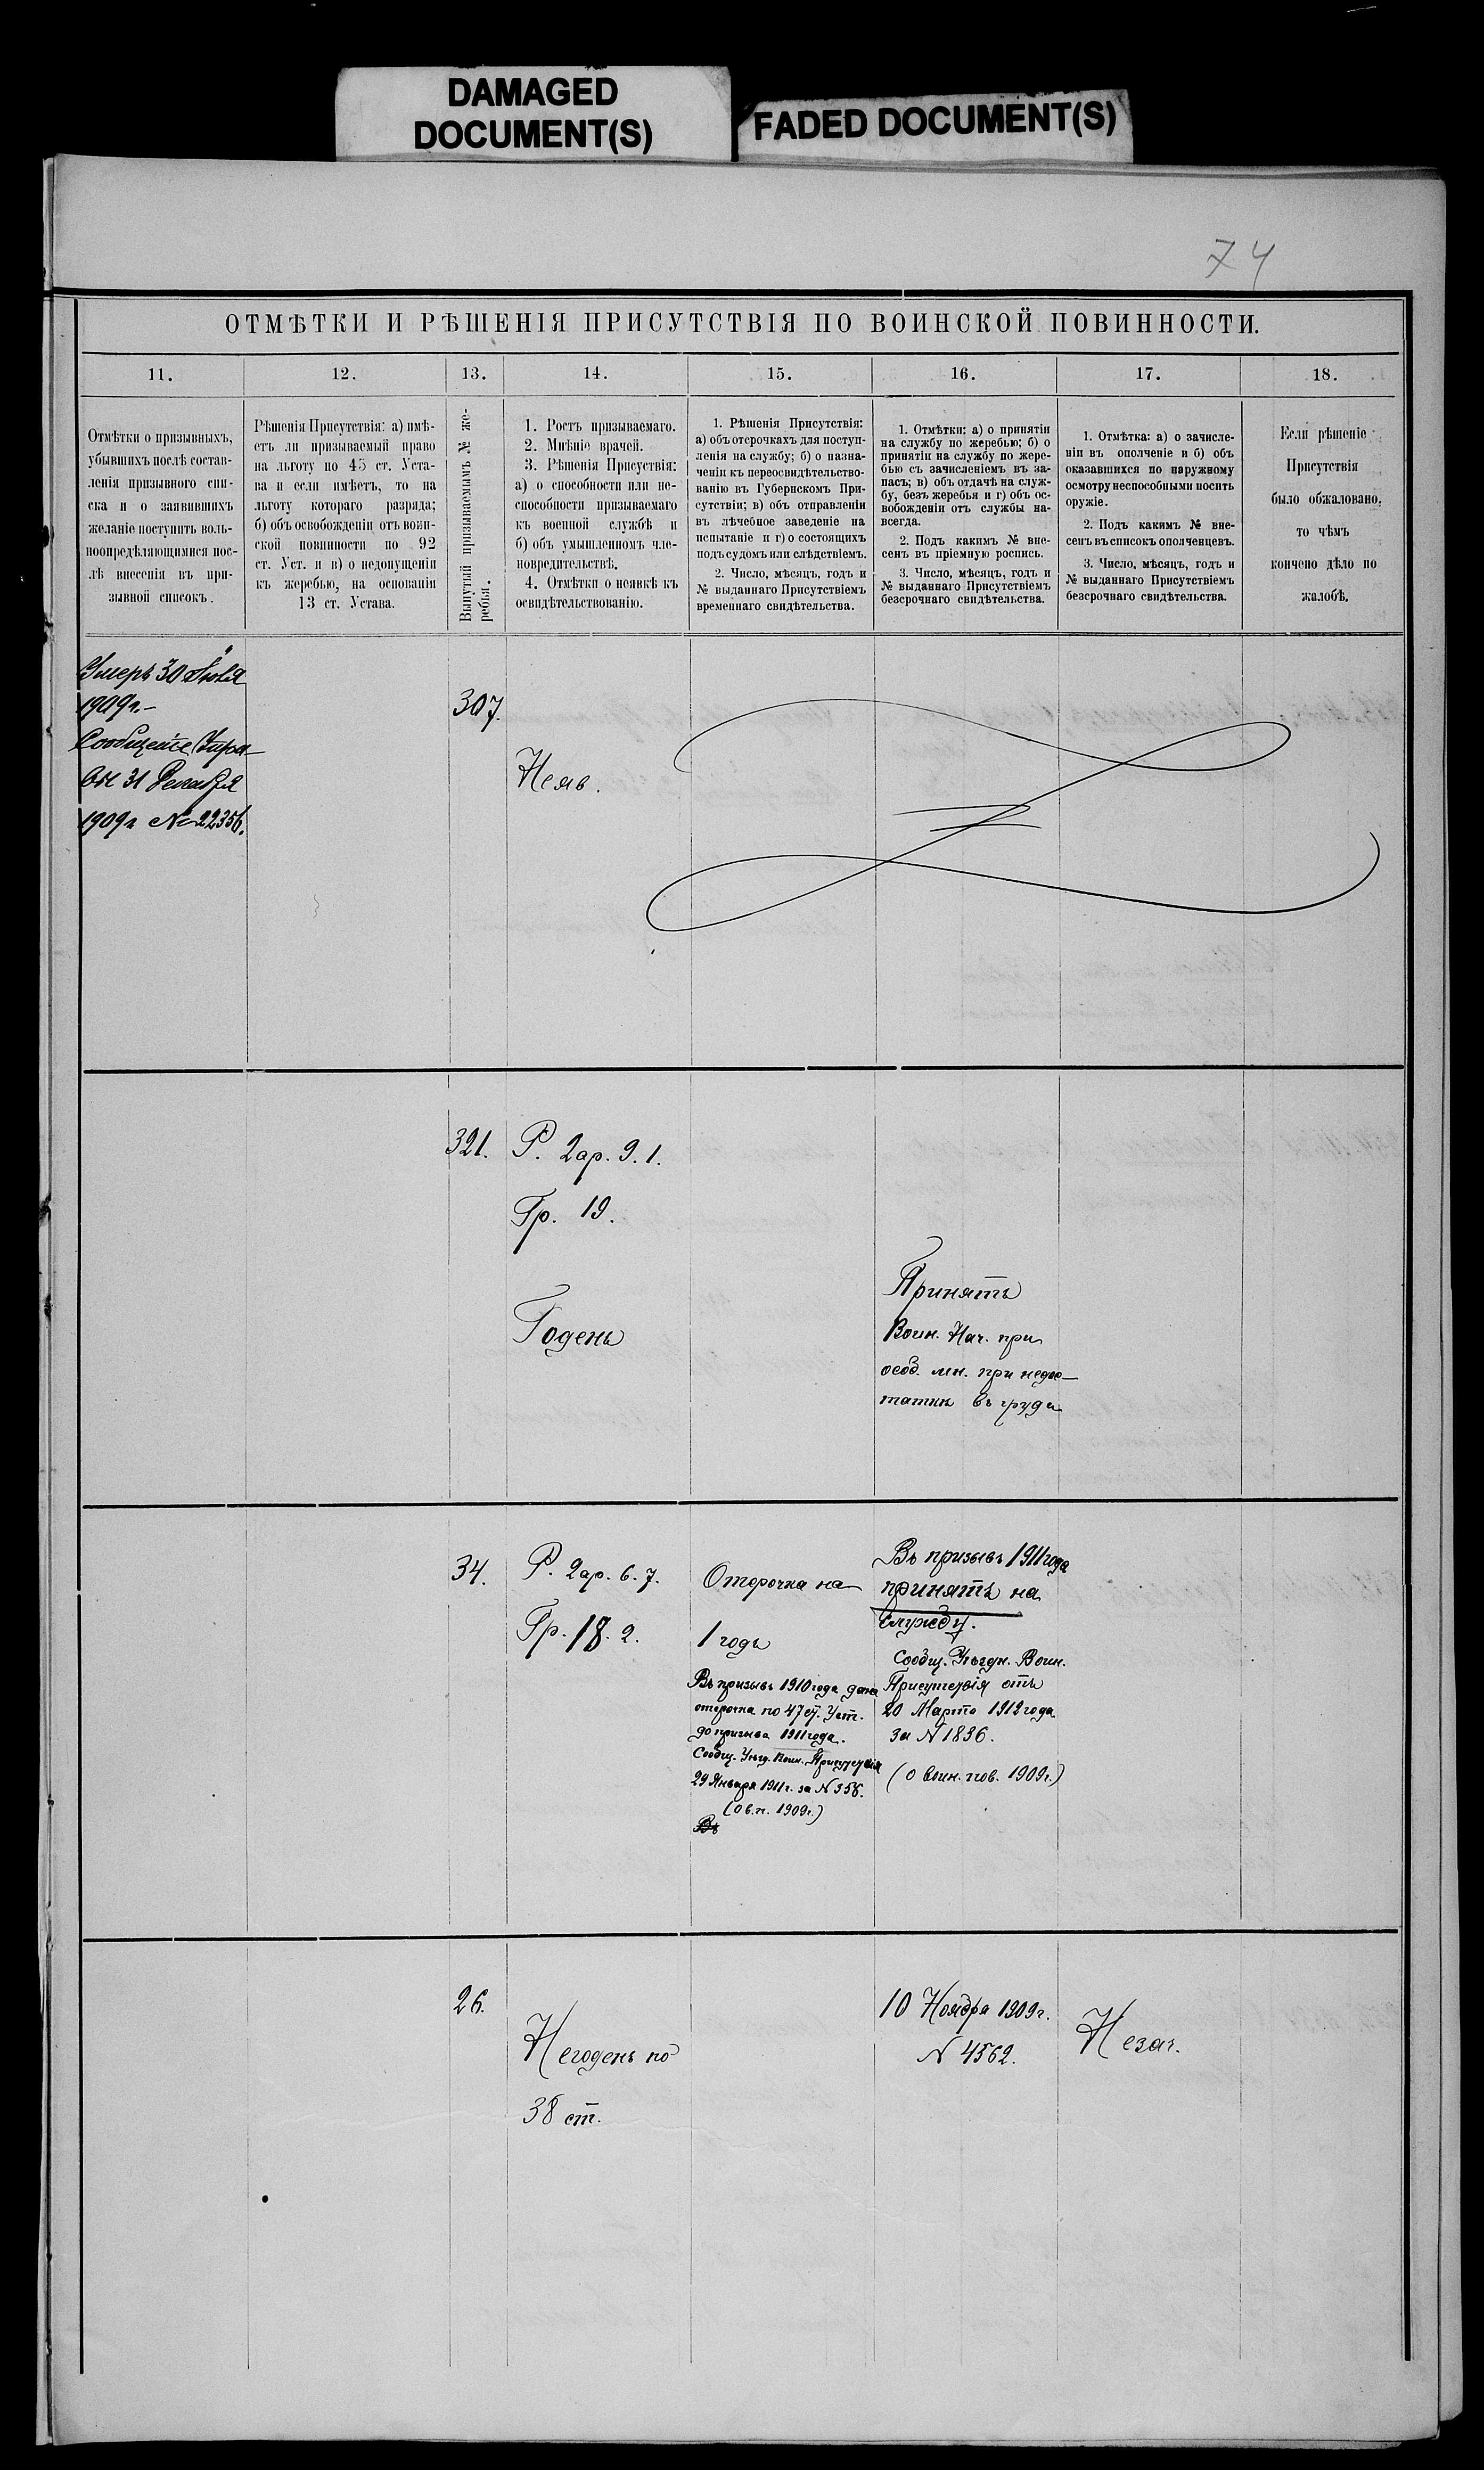 DAMAGED
DOCUMENT(S)
FADED DOCUMENT(S)
74
ОТМѢТКИ И РѢШЕНІЯ ПРИСУТСТВІЯ ПО ВОИНСКОЙ ПОВИННОСТИ.
11.
12.
13.
14.
15.
16.
17.
18.
Отмѣтки о призывныхъ,
убывшихъ послѣ состав-
ленія призывного спи-
ска и о заявившихъ
желаніе поступить воль-
ноопредѣляющимися пос-
лѣ внесенія въ при-
зывной списокъ.
Рѣшенія Присутствія: а) имѣ-
етъ ли призываемый право
на льготу по 45 ст. Уста-
ва и если имѣетъ, то на
льготу котораго разряда;
б) объ освобожденіи отъ воин-
ской повинности по 92
ст. Уст. и в) о недопущеніи
къ жеребью, на основаніи
13 ст. Устава.
Вынутый призываемымъ № же-
ребья.
1. Ростъ призываемаго.
2. Мнѣніе врачей.
3. Рѣшенія Присуствія:
а) о способности или не-
способности призываемаго
къ военной службѣ и
б) объ умышленномъ чле-
новредительствѣ.
4. Отмѣтки о неявкѣ къ
освидѣтельствованію.
1. Рѣшенія Присутствія:
а) объ отсрочкахъ для поступ-
ленія на службу; б) о назна-
ченіи къ переосвидѣтельство-
ванію въ Губернскомъ При-
сутствіи; в) объ отправленіи
въ лѣчебное заведеніе на
испытаніе и г) о состоящихъ
подъ судомъ или слѣдствіемъ.
2. Число, мѣсяцъ, годъ и
№ выданнаго Присутствіемъ
временнаго свидѣтельства.
1. Отмѣтки: а) о принятіи
на службу по жеребью; б) о
принятіи на службу по жере-
бью съ зачисленіемъ въ за-
пасъ; в) объ отдачѣ на служ-
бу, безъ жеребья и г) объ ос-
вобожденіи отъ службы на-
всегда.
2. Подъ какимъ № вне-
сенъ въ пріемную роспись.
3. Число, мѣсяцъ, годъ и
№ выданнаго Присутствіемъ
безсрочнаго свидѣтельства.
1. Отмѣтка: а) о зачисле-
ніи въ ополченіе и б) объ
оказавшихся по наружному
осмотру неспособными носить
оружіе.
2. Подъ какимъ № вне-
сенъ въ списокъ ополченцевъ.
3. Число, мѣсяцъ, годъ и
№ выданнаго Присутствіемъ
безсрочнаго свидѣтельства.
Если рѣшеніе
Присутствія
было обжаловано,
то чѣмъ
кончено дѣло по
жалобѣ.
Умеръ 30
1909г.
Сообщеніе Упра-
вы 31 Декабря
1909г № 22356.
307.
Неяв.
321.
Р. 2ар. 9. 1.
Гр. 19.
Годенъ
Принять
Воин. Нач. при
особ. мн. при недос-
таткѣ въ груди
34.
Р. 2ар. 6. 7.
Гр. 18. 2.
Отсрочка на
1 годъ
Въ призывъ 1910 года дана
отсрочка по 47 ст. Уст.
до призыва 1911 года.
Сообщ. Уѣзд. Воин. Присутствія
29 Января 1911 г. за N 358.
(О в. п. 1909г.)
Въ
Въ призывъ 1911 года
принятъ на
службу.
Сообщ. Уѣздн. Воин.
Присутствія отъ
20 Марта 1912 года
за N 1836.
(О воин. пов. 1909г.)
26.
Негоденъ по
38 ст.
10 Ноября 1909г.
N 4562.
Незач.